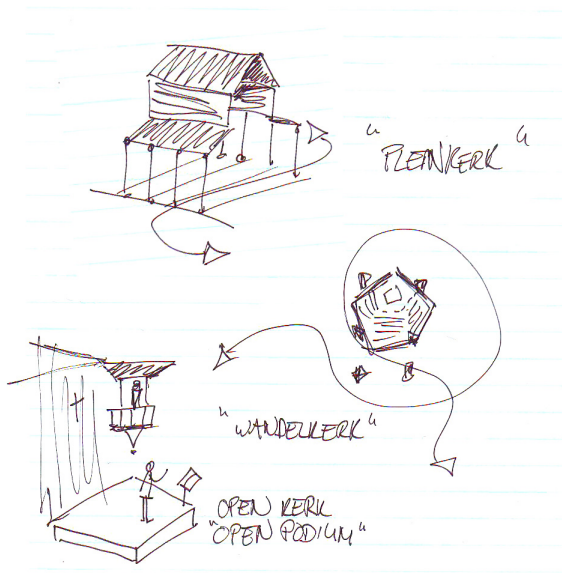 "PLEINKERK"
"WANDELKERK"
OPEN KERK
"OPEN PODIUM"